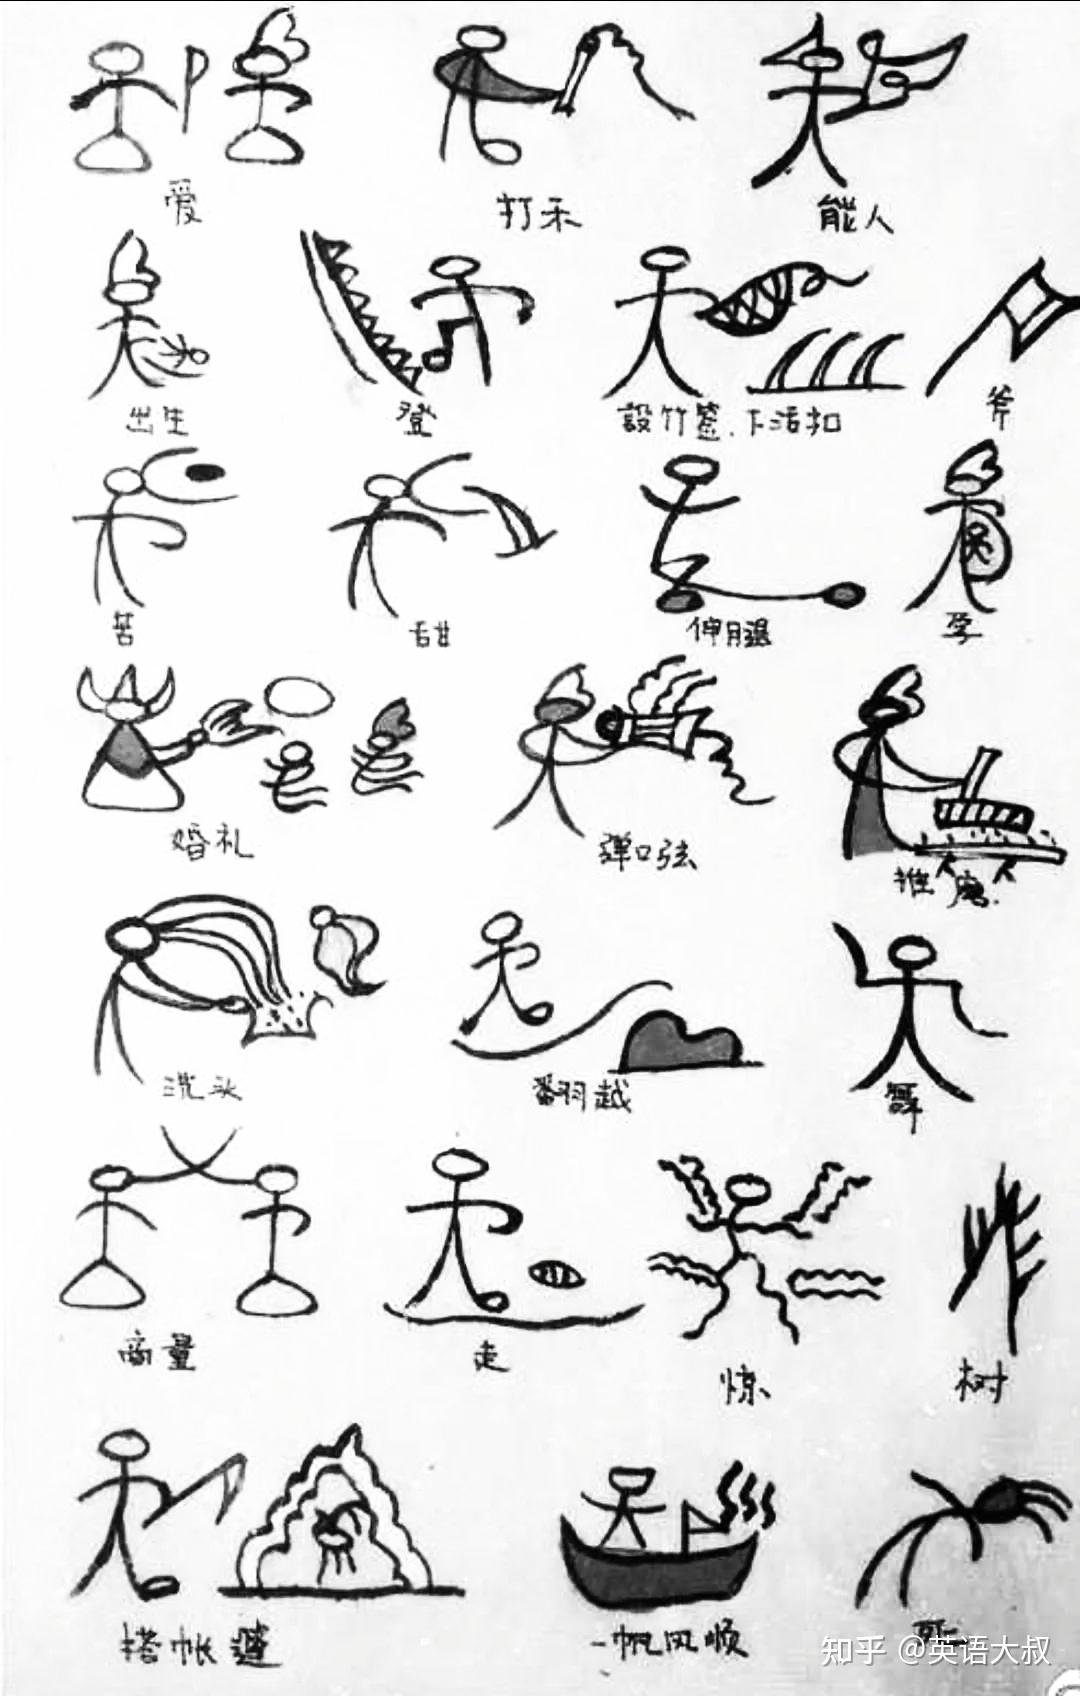 爱 打禾 能人
出生 登 設竹簽.下活扣 斧
苦 甜 伸腿 孕
婚礼 弹口弦 推磨.
洗头 翻越 舞
商量 走 惊 树
搭帐篷 一帆风顺 死
知乎 @英语大叔